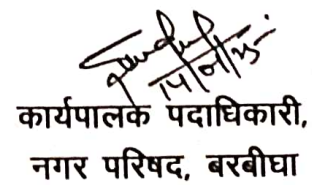 कार्यपालक पदाधिकारी,
नगर परिषद, बरबीघा